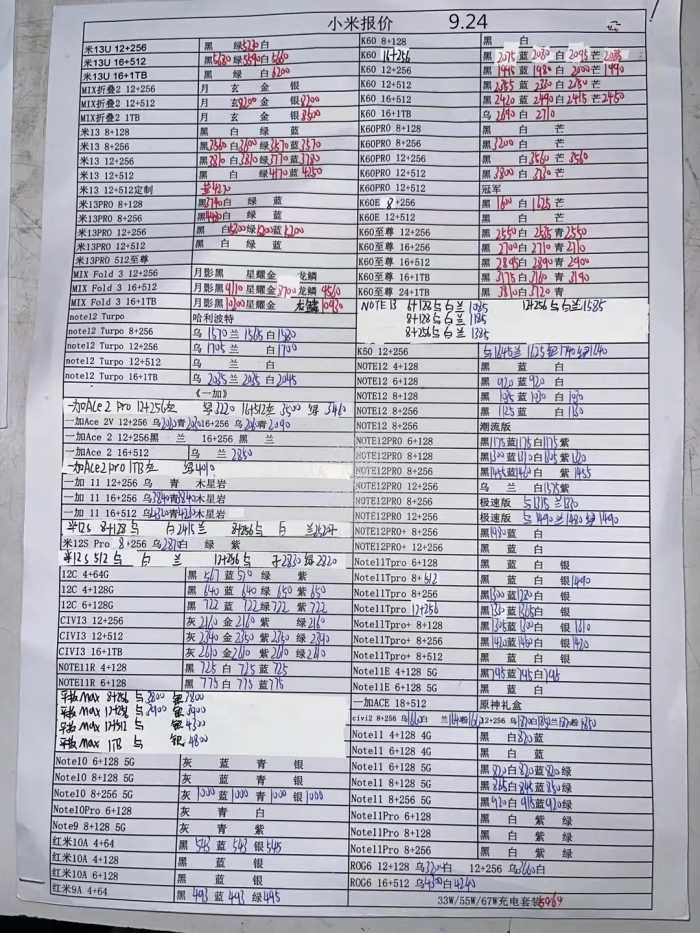 小米报价 9.24
米13U 12+256 黑 绿5230白
米13U 16+512 黑5680绿5590白5660
米13U 16+1TB 黑 绿 白6200
MIX折叠2 12+256 月 玄 金 银
MIX折叠2 12+512 月 玄8200金 银8200
MIX折叠2 1TB 月 玄 金 银8500
米13 8+128 黑 白 绿 蓝
米13 8+256 黑3560白3600绿3570蓝3570
米13 12+256 黑3810白3810绿3770蓝3780
米13 12+512 黑 白 绿4170蓝4250
米13 12+512定制
米13PRO 8+128 黑 白 绿 蓝
米13PRO 8+256 白 绿 蓝
米13PRO 12+256 黑 白 绿 蓝
米13PRO 12+512 黑 白 绿 蓝
米13PRO 512至尊
MIX Fold 3 12+256 月影黑 星耀金 龙鳞
MIX Fold 3 16+512 月影黑9110星耀金 龙鳞
MIX Fold 3 16+1TB 月影黑 星耀金 龙鳞
note12 Turpo 哈利波特
note12 Turpo 8+256 乌1570兰1565白1580
note12 Turpo 12+256 乌1705兰 白1700
note12 Turpo 12+512 乌 兰 白
note12 Turpo 16+1TB 乌2035兰2035白2045
《一加》
一加Ace 2 Pro 12+256灰 绿3220 16+512灰3500 绿3460
一加Ace 2V 12+256 乌 青 16+256 乌 青2090
一加Ace 2 12+256黑 兰 16+256 黑 兰
一加Ace 2 16+512 乌 兰2850
一加Ace2pro 1TB灰 绿4010
一加 11 12+256 乌 青 木星岩
一加 11 16+256 乌3840青3840木星岩
一加 11 16+512 乌 青4230木星岩
米12S 8+128乌 白2415兰 8+256乌 白
米12S Pro 8+256 乌 白 绿 紫
米12S 512乌 白 兰 12+256乌 2830绿2820
12C 4+64G 黑567蓝570绿 紫
12C 4+128G 黑640蓝640绿650紫650
12C 6+128G 黑722蓝722绿722紫722
CIVI3 12+256 灰2160金2160紫 绿2160
CIVI3 12+512 灰2340金2350紫2350绿2340
CIVI3 16+1TB 灰2610金2610紫 绿2610
NOTE11R 4+128 黑725白725蓝725
NOTE11R 6+128 黑775白775蓝775
平板Max 8+256乌3800 银3800
平板Max 12+256乌3900 银3900
平板Max 12+512乌 银4300
平板Max 1TB乌 银4800
Note10 6+128 5G 灰 蓝 青 银
Note10 8+128 5G 灰 蓝 青 银
Note10 8+256 5G 灰1000蓝1000青1000银1000
Note10Pro 6+128 灰 青 白
Note9 8+128 5G 灰 青 紫
红米10A 4+64 黑543蓝543银545
红米10A 4+128 黑 蓝 银
红米10A 6+128 黑 蓝 银
红米9A 4+64 黑443蓝443绿445
K60 8+128 黑 白
K60 16+256 黑2075蓝2080白2095芒2085
K60 12+256 黑1995蓝1980白2000芒1990
K60 12+512 黑2355蓝2330白2350芒
K60 16+512 黑2420蓝2490白2415芒2450
K60 16+1TB 乌2690白2710
K60PRO 8+128 黑 白 芒
K60PRO 8+256 黑3200白 芒
K60PRO 12+256 黑 白3560芒3560
K60PRO 12+512 黑3800白3730芒
K60PRO 12+512 冠军
K60E 8+256 黑1600白1625芒
K60E 12+512 黑 白 芒
K60至尊 12+256 黑2550白2535青2550
K60至尊 16+256 黑2700白2710青2710
K60至尊 16+512 黑2895白2890青2900
K60至尊 16+1TB 黑3175白3160青3190
K60至尊 24+1TB 黑3810白3720青
NOTE 13 6+128乌白兰1085 12+256乌白兰1585
8+128乌白兰1185
8+256乌白兰1385
K50 12+256 乌1645兰1625银1740绿1640
NOTE12 4+128 黑 蓝 白
NOTE12 6+128 黑920蓝920白
NOTE12 8+128 黑1035蓝1030白1030
NOTE12 8+256 黑1125蓝 白1130
NOTE12 8+256 潮流版
NOTE12PRO 6+128 黑1175蓝1175白1175紫
NOTE12PRO 8+128 黑1300蓝1310白1305紫1320
NOTE12PRO 8+256 黑1455蓝1460白 紫1455
NOTE12PRO 12+256 乌 兰 白1575紫
NOTE12PRO 8+256 极速版 乌1315白1330兰
NOTE12PRO 12+256 极速版 乌1490兰1480绿1490
NOTE12PRO+ 8+256 黑1980蓝 白
NOTE12PRO+ 12+256 黑 蓝 白
Note11Tpro 6+128 黑 蓝 白 银
Note11Tpro 8+512 黑 蓝 白 银1490
Note11Tpro 8+256 黑1300蓝1280白 银
Note11Tpro 12+256 黑1380蓝1365白 银
Note11Tpro+ 8+128 黑1305蓝1300白 银1310
Note11Tpro+ 8+256 黑1420蓝1450白 银1420
Note11Tpro+ 8+512 黑 蓝 白 银
Note11E 4+128 5G 黑795蓝795白795
Note11E 6+128 5G 黑 蓝 白
一加ACE 18+512 原神礼盒
civi2 8+256 乌 白 兰 粉 12+256 乌 白 兰 粉1850
Note11 4+128 4G 黑 白820蓝
Note11 6+128 4G 黑 白 蓝
Note11 6+128 5G 黑820白820蓝820绿
Note11 8+128 5G 黑865白845蓝850绿
Note11 8+256 5G 黑920白915蓝920绿
Note11Pro 6+128 黑 白 绿
Note11Pro 8+128 黑 白 紫 绿
Note11Pro 8+256 黑 白 紫 绿
ROG6 12+128 乌3320白 12+256 乌3660白
ROG6 16+512 乌4300白4240
33W/55W/67W充电套装